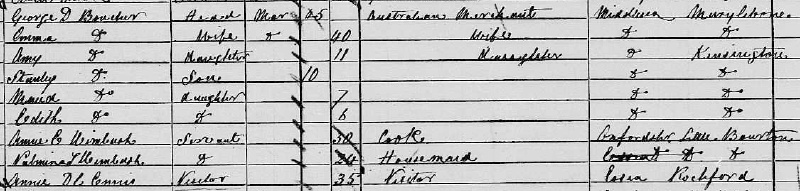 George D Boucher Head Mar 45 Australian Merchant Middlesex Marylebone
Emma do Wife do 40 Wife do do
Amy do Daughter 11 Daughter do Kensington
Stanley do Son 10 do do
Maud do Daughter 7 do do
Edith do do 6 do do
Annie E Wimbush Servant 30 Cook Oxfordshr Little Bourton
Wimbush do 24 Housemaid do do
Annie D Visitor 35 Visitor Essex Rochford